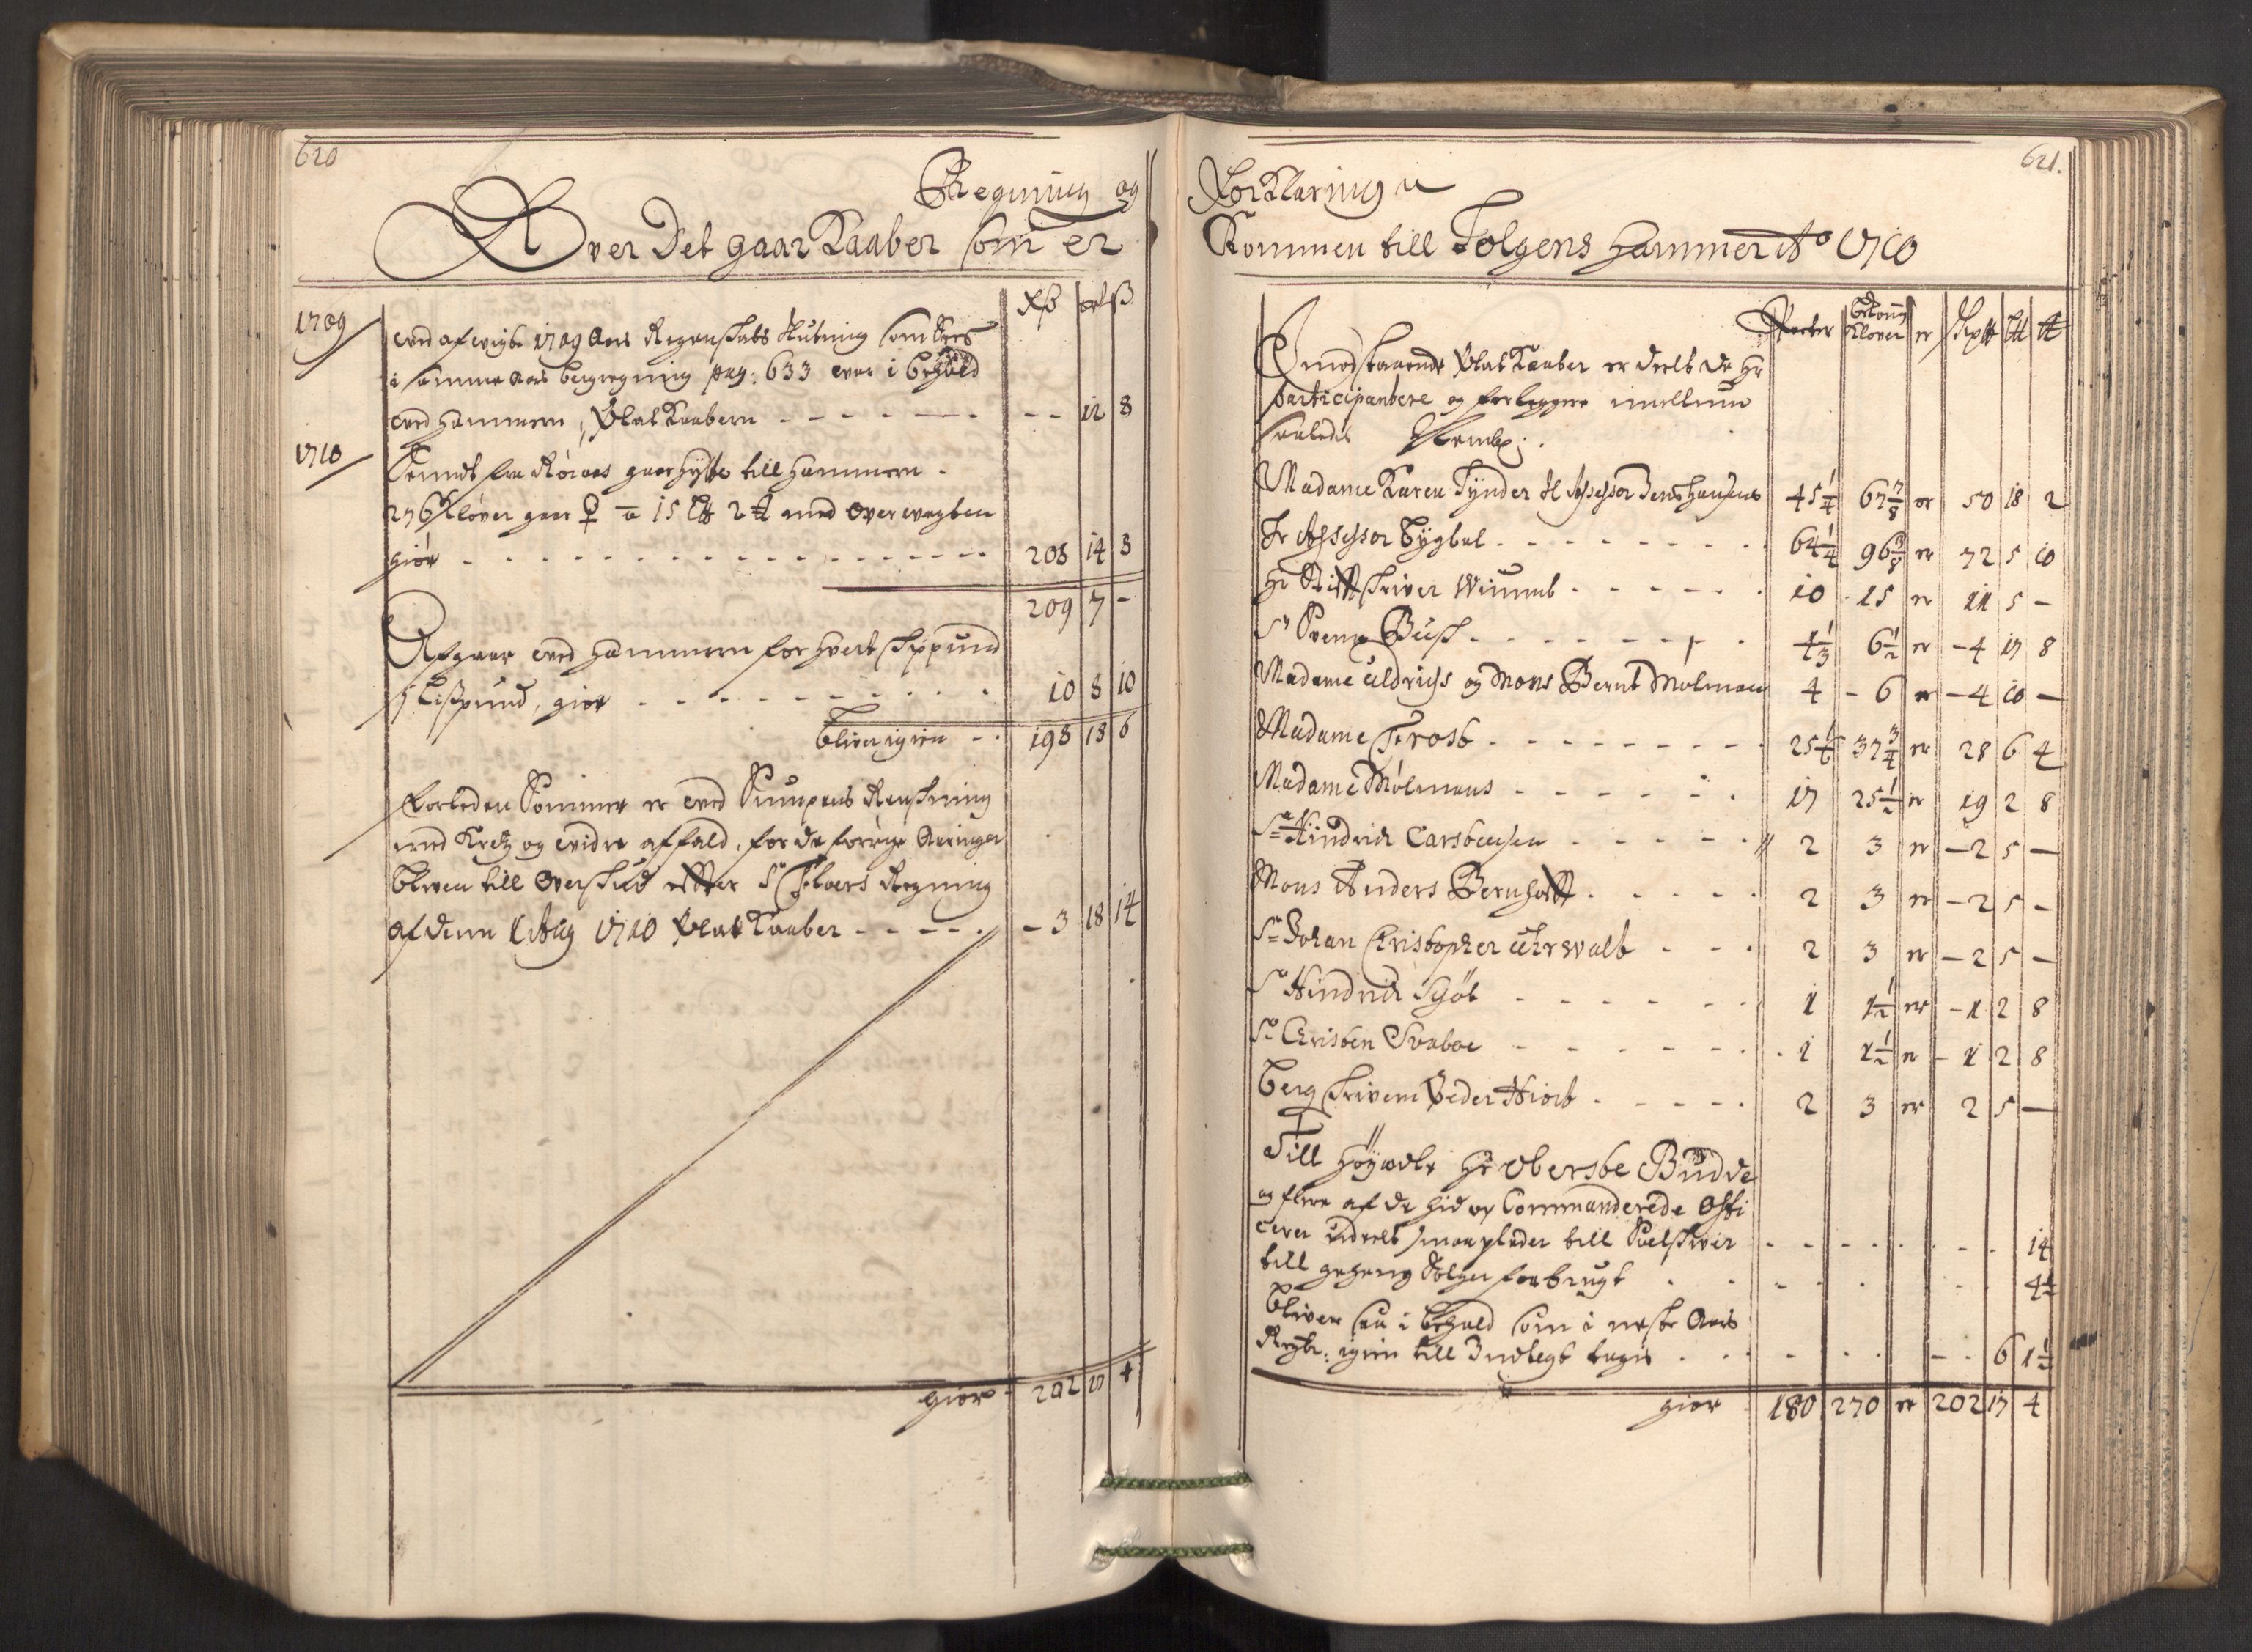 620
Regning og
Over Det gaar Kaaber som er
1709
ved afvigte 1709 Aars Regenskabs slutning som sees
i samme Aars bergregning pag: 633 var i behold
ved hammeren, Plat Kaabern - - - - - - - - 12 8
1710
Sendt fra Röraas gaarhytte till hammern
276 Klöver gaar ♀ a 15 2 med Overvegten
giör - - - 208 14 8
209 7 -
Afgaar ved hammeren for hvert skippund
1 Lispund, giör - - - 10 8 10
bliver igien - - 198 18 6
forleden Sommer er ved Sumpens Renskning
med Kretz og vidre affald, for de forrige Aaringer
bleven till Overskud efter Sr Floers Regning
af denn 1 Aug 1710 Plat Kaaber - - - - 3 18 14
giör 202 17 4
621.
Forklaring
Kommen till Tolgens hammer Ao 1710
Parter Klöver er
Imodstaaende Plat Kaaber er deelt de Hr
Participantere og forleggere imellum
saaledes
Madame Karen Tÿnder Sl Assessor Jens Hansens 45 1/4 67 7/8 er 50 18 2
Hr Assessor Tÿgtel - - - 64 1/4 96 3/8 er 72 5 10
Hr Stiftskriver Wiumb - - - 10 15 er 11 5 -
Sr Svend Busk - - - 4 1/3 6 1/2 er - 4 17 8
Madame Uldrichs og Mons Bernt Molman 4 - 6 er - 4 10 -
Madame Frost - - - 25 1/6 37 3/4 er 28 6 4
Madame Mölmans - - - 17 25 1/2 er 19 2 8
Sr Hindrich Carstensen - - - 2 3 er - 2 5 -
Mons Anders Bernhoft - - - 2 3 er - 2 5 -
Sr Johan Christopher Uhrwalt - - - 2 3 er - 2 5 -
Sr Hindrich Siöt - - - 1 1 1/2 er - 1 2 8
Sr Christen Svaboe - - - 1 1 1/2 er - 1 2 8
berg skriveren Peder Hiort - - - 2 3 er 2 5 -
Till höÿædle Hr Oberste Budde
og flere af de hid op Commanderede Offi
cerer udeelt smaa plader till
till Tolgen forbrugt
bliver saa i behold som i neste Aars
Regt: igien till Indtegt tages - - - 6 1 1/2
giör 180 270 er 202 17 4